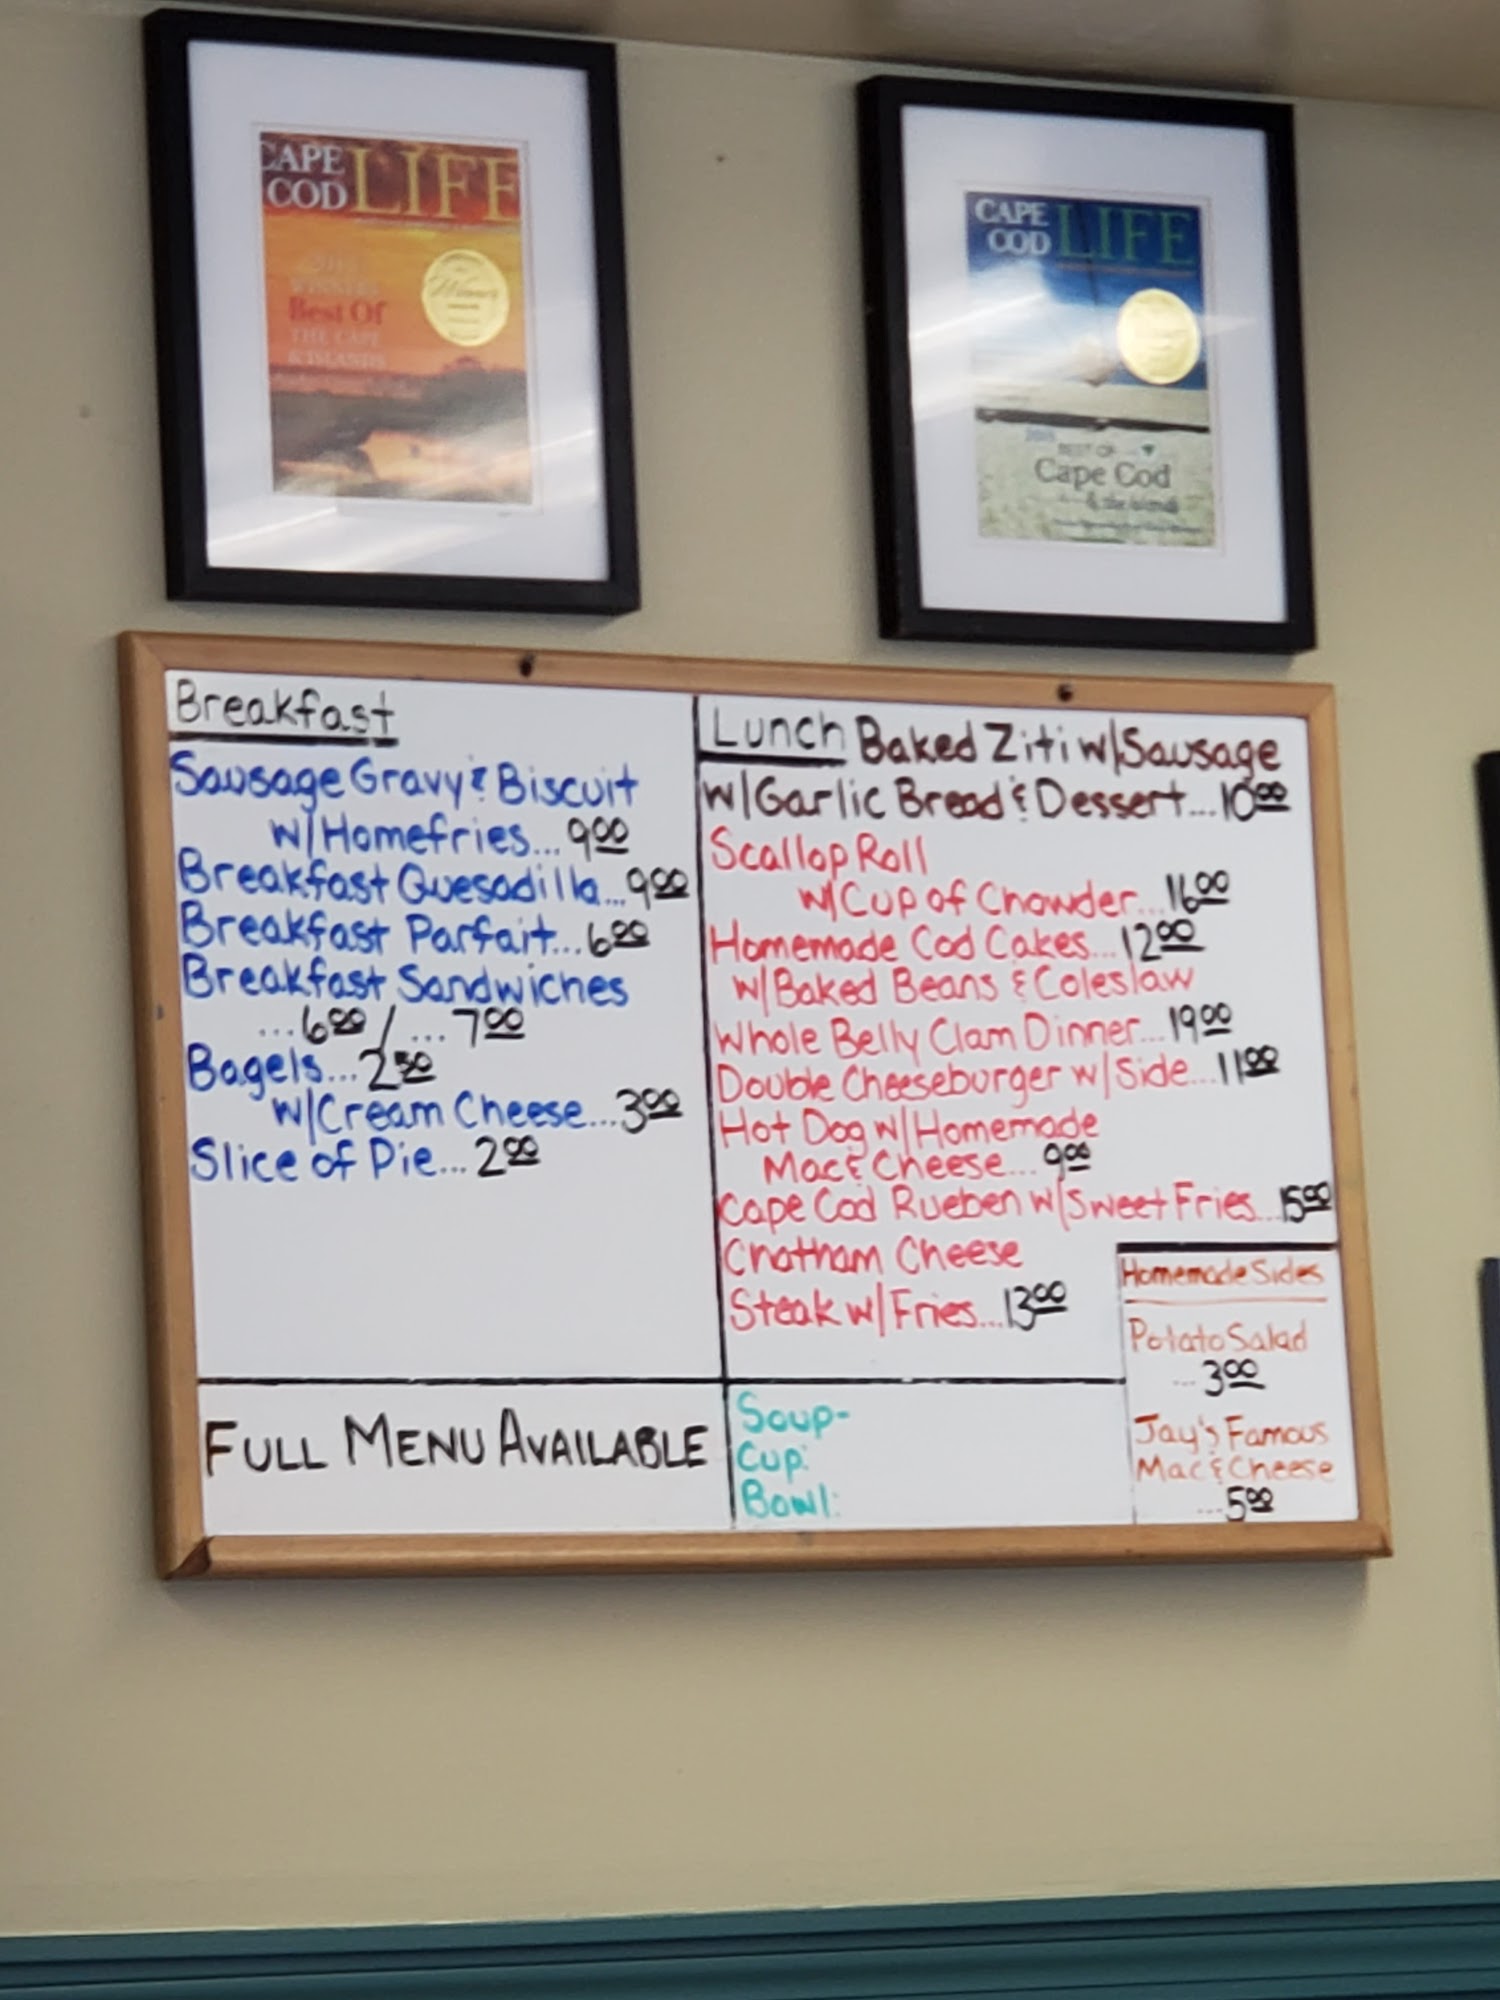 CAPE
COD LIFE
WINNERS
Best Of
THE CAPE
& ISLANDS
Winner
CAPE
COD LIFE
BEST OF
Cape Cod
& the Islands
Breakfast
Sausage Gravy & Biscuit
w/Homefries...9.00
Breakfast Quesadilla...9.00
Breakfast Parfait...6.00
Breakfast Sandwiches
...6.00/...7.00
Bagels...2.50
w/Cream Cheese...3.00
Slice of Pie...2.00
Lunch Baked Ziti w/Sausage
w/Garlic Bread & Dessert...10.00
Scallop Roll
w/Cup of Chowder...16.00
Homemade Cod Cakes...12.00
w/Baked Beans & Coleslaw
Whole Belly Clam Dinner...19.00
Double Cheeseburger w/Side...11.00
Hot Dog w/Homemade
Mac & Cheese...9.00
Cape Cod Rueben w/Sweet Fries...15.00
Chatham Cheese
Steak w/Fries...13.00
Homemade Sides
Potato Salad
...3.00
Jay's Famous
Mac & Cheese
...5.00
FULL MENU AVAILABLE
Soup-
Cup:
Bowl: